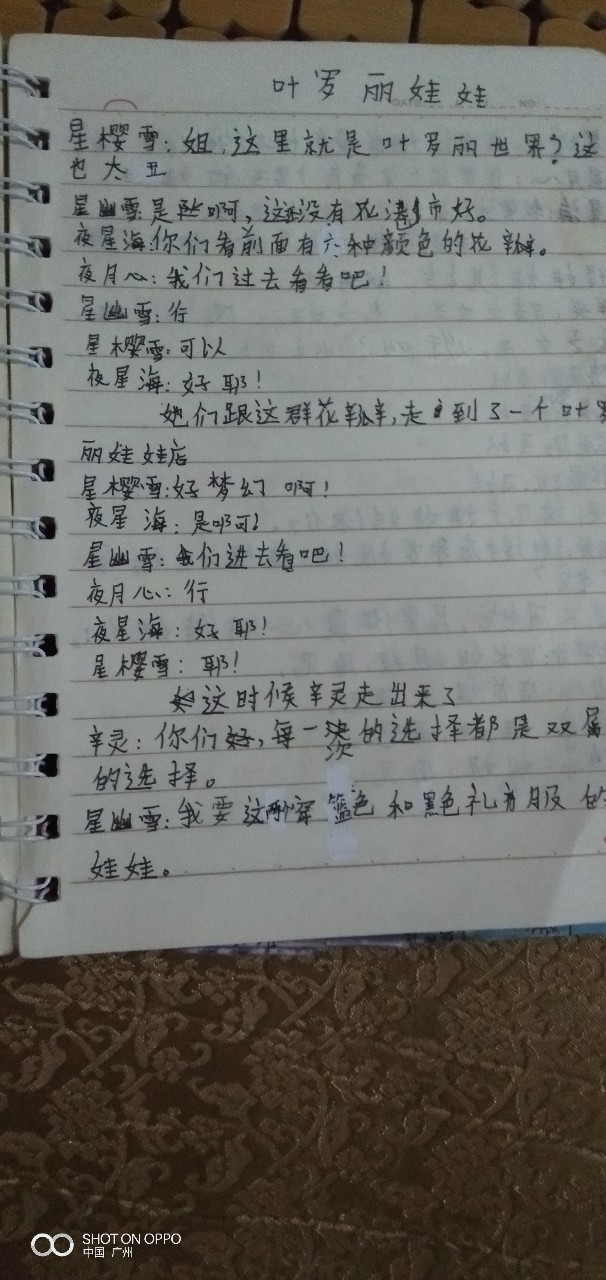 叶罗丽娃娃
星樱雪:姐,这里就是叶罗丽世界?这
也太丑
星幽雪:是啊,这没有花港市好。
夜星海:你们看前面有六种颜色的花瓣。
夜月心:我们过去看看吧!
星幽雪:行
星樱雪:可以
夜星海:好耶!
她们跟这群花瓣,走到了一个叶罗
丽娃娃店
星樱雪:好梦幻啊!
夜星海:是啊!
星幽雪:我们进去看吧!
夜月心:行
夜星海:好耶!
星樱雪:耶!
这时候辛灵走出来了
辛灵:你们好,每一次的选择都是双属
的选择。
星幽雪:我要这穿篮色和黑色礼服的
娃娃。
SHOT ON OPPO
中国 广州